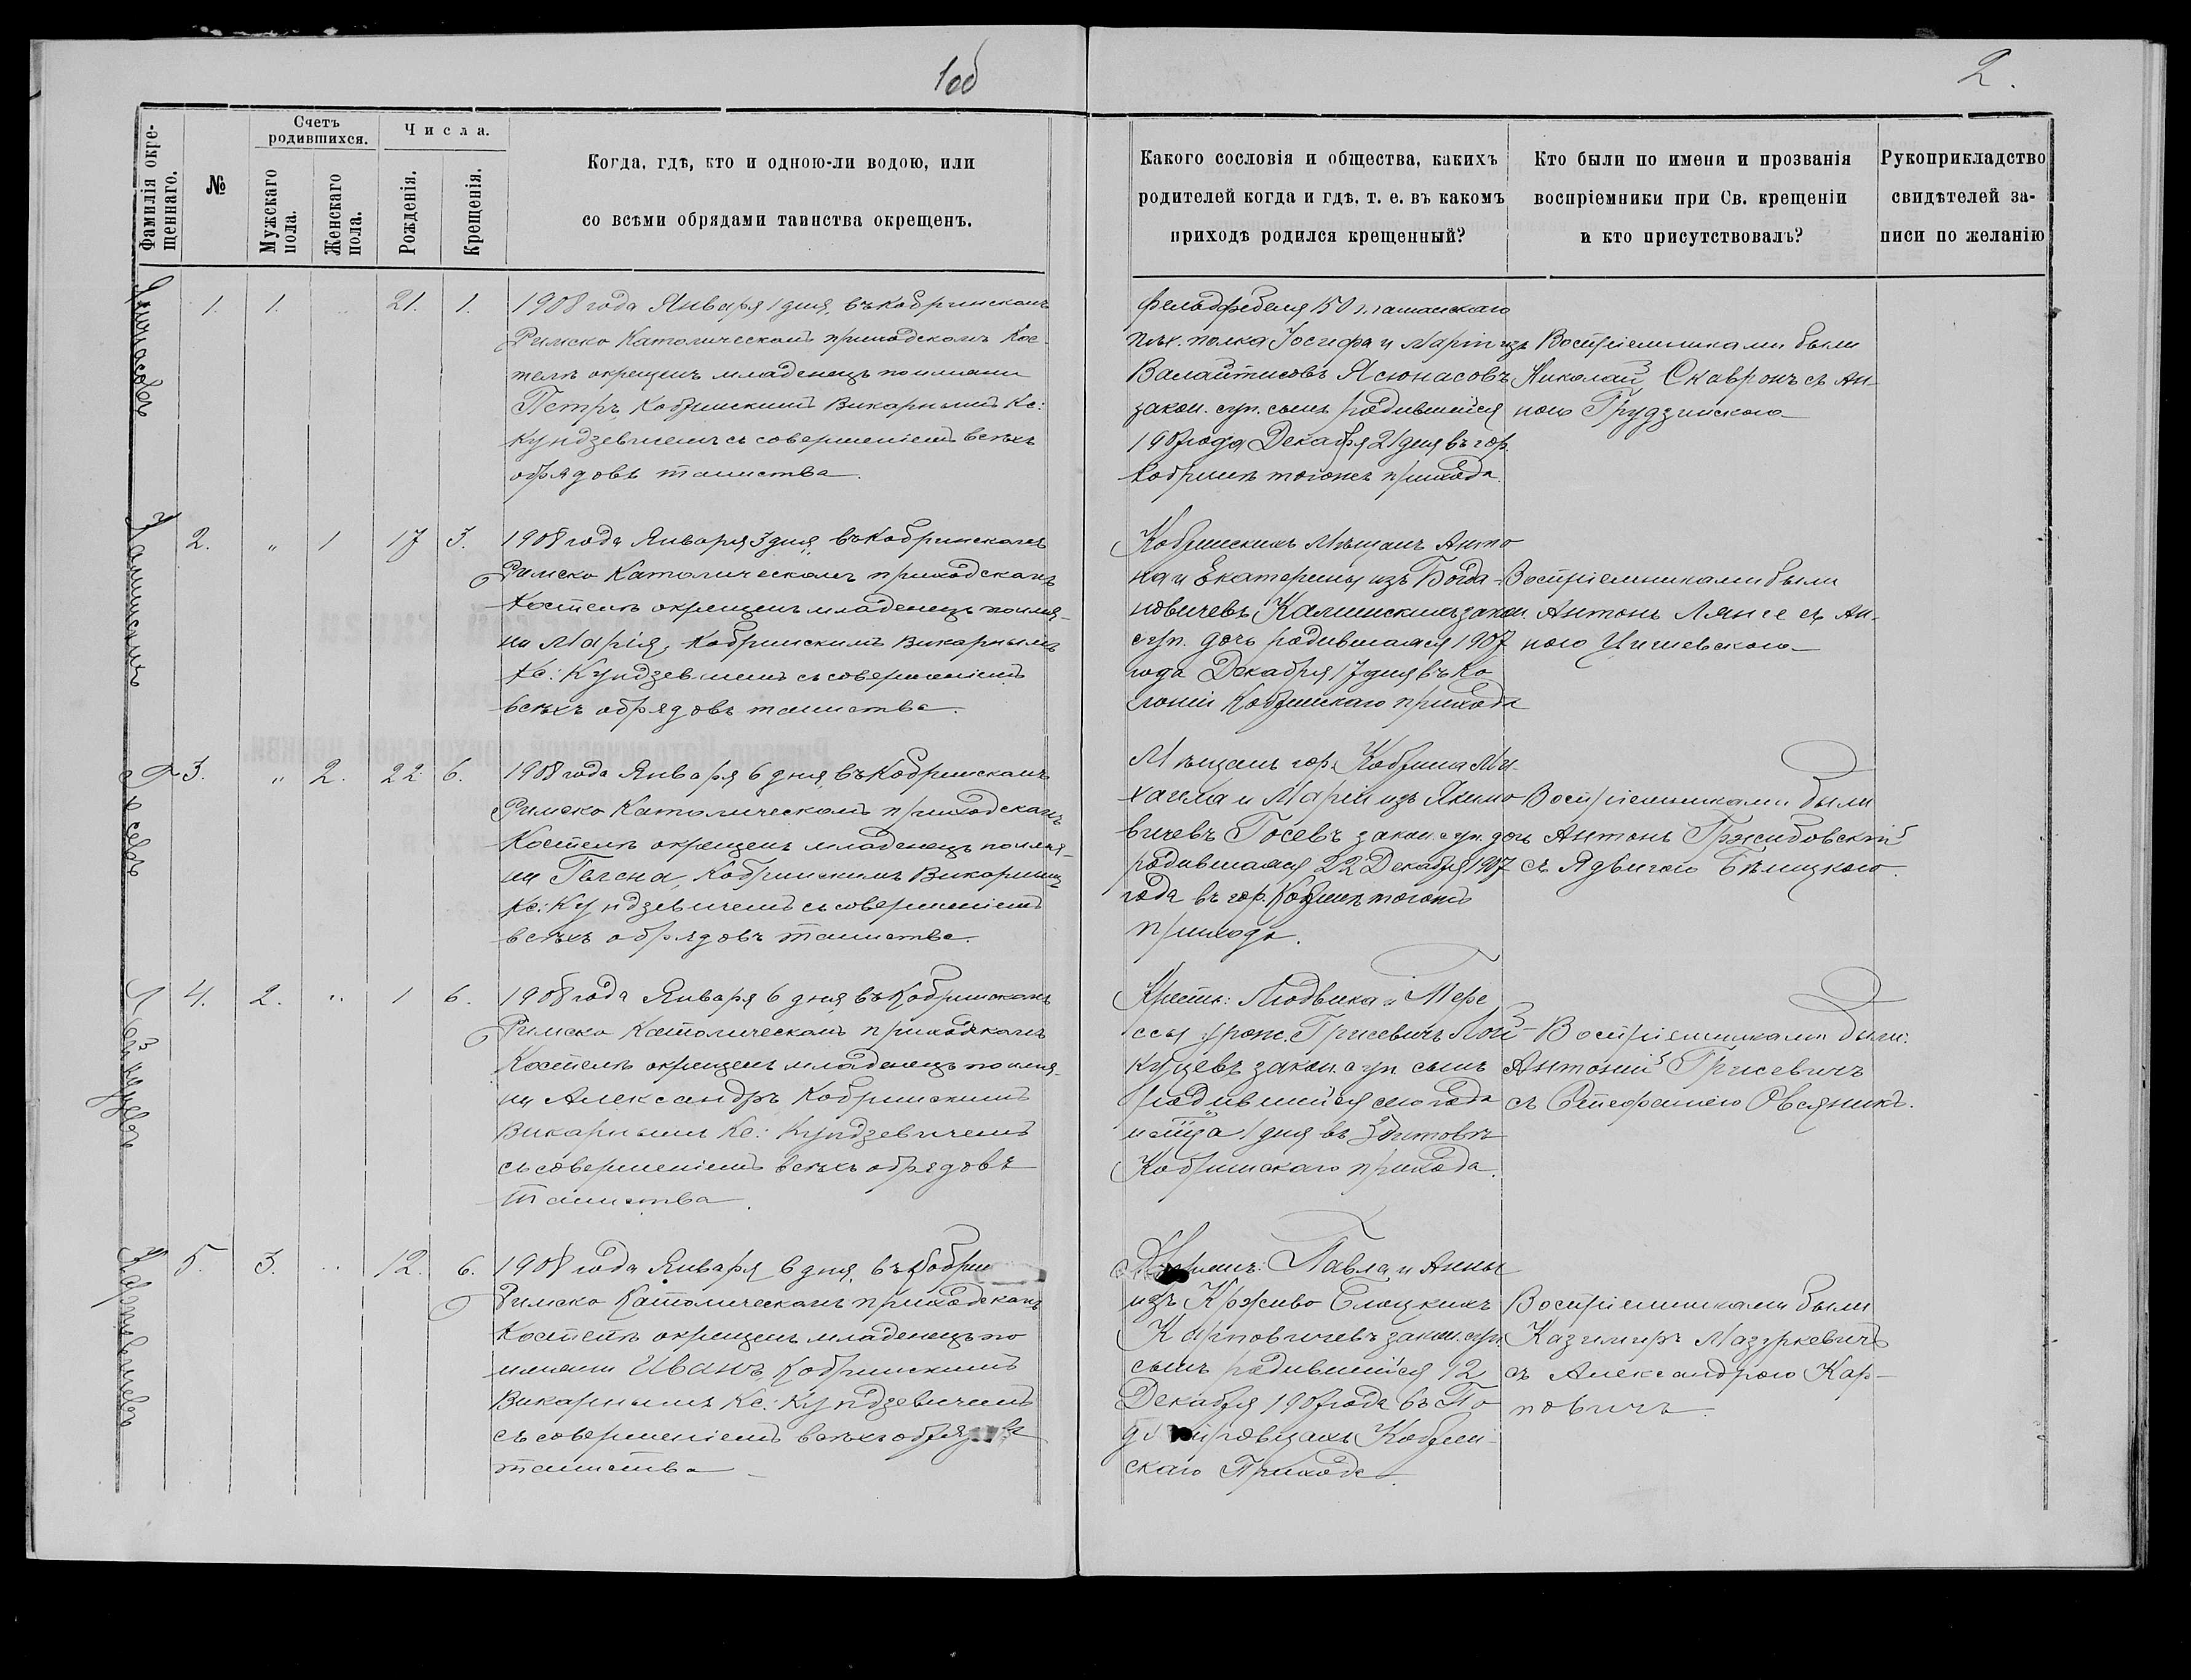 1об
2.
Фамилія окре-
щеннаго.
№
Счетъ
родившихся.
Мужскаго
пола.
Женскаго
пола.
Числа.
Рожденія.
Крещенія.
Когда, гдѣ, кто и одною-ли водою, или
со всѣми обрядами таинства окрещенъ.
Какого сословія и общества, какихъ
родителей когда и гдѣ, т. е. въ какомъ
приходѣ родился крещенный?
Кто были по имени и прозванія
воспріемники при Св. крещеніи
и кто присутствовалъ?
Рукоприкладство
свидѣтелей за-
писи по желанію
1. 1. " 21. 1.
1908 года Января 1 дня, въ Кобринскомъ
Римско Католическомъ приходскомъ Кос-
телѣ окрещенъ младенецъ по имени
Петръ, Кобринскимъ Викарнымъ Кс:
Кундзевичемъ съ совершеніемъ всѣхъ
обрядовъ таинства.
Фельдфебеля 150
пѣх. полка Іосифа и Маріи изъ
Валайтисовъ Ясюнасовъ
закон. суп. сынъ родившійся
1907 года Декабря 21 дня въ гор.
Кобринѣ тогоже прихода.
Воспріемниками были
Николай Скавронъ съ Ан-
ною Грудзинскою
Калинскихъ
2. " 1 17 3.
1908 года Января 3 дня, въ Кобринскомъ
Римско Католическомъ приходскомъ
Костелѣ окрещенъ младенецъ по име-
ни Марія, Кобринскимъ Викарнымъ
Кс: Кундзевичемъ съ совершеніемъ
всѣхъ обрядовъ таинства.
Кобринскихъ Мѣщанъ Анто
на и Екатерины изъ Богда-
новичевъ Калинскихъ закон.
суп. дочь родившаяся 1907
года Декабря 17 дня въ Ко
лоніи Кобринскаго прихода
Воспріемниками были
Антонъ Лянге съ Ан-
ною
Госевъ
3. " 2. 22 6.
1908 года Января 6 дня, въ Кобринскомъ
Римско Католическомъ приходскомъ
Костелѣ окрещенъ младенецъ по име-
ни Гелена, Кобринскимъ Викарнымъ
Кс: Кундзевичемъ съ совершеніемъ
всѣхъ обрядовъ таинства.
Мѣщанъ гор. Кобрина Ми-
хаила и Маріи изъ Якимо
вичевъ Госевъ закон. суп. дочь
родившаяся 22 Декабря 1907
года въ гор. Кобринѣ тогоже
прихода.
Воспріемниками были
Антонъ Гржибовскій
съ Ядвигою Бѣлицкою.
Лойкуцевъ
4. 2. " 1 6.
1908 года Января 6 дня, въ Кобринскомъ
Римско Католическомъ приходскомъ
Костелѣ окрещенъ младенецъ по име-
ни Александръ Кобринскимъ
Викарнымъ Кс: Кундзевичемъ
съ совершеніемъ всѣхъ обрядовъ
таинства.
Крест: Людвика и Тере
ссы урож. Грисевичъ Лой-
куцевъ закон. суп. сынъ
родившійся сего года
мѣсяца 1 дня въ Здитовѣ
Кобринскаго прихода.
Воспріемниками были:
Антоній Грисевичъ
съ Стефаніею Овсяникъ.
Карповичевъ
5. 3. " 12. 6.
1908 года Января 6 дня, въ Кобрин
Римско Католическомъ приходскомъ
Костелѣ окрещенъ младенецъ по
имени Иванъ, Кобринскимъ
Викарнымъ Кс: Кундзевичемъ
съ совершеніемъ всѣхъ обрядовъ
таинства
Павла и Анны
изъ Крживо Блоцкихъ
Карповичевъ закон. суп.
сынъ родившійся 12
Декабря 1907 года въ По
Кобрин-
скаго Прихода.
Воспріемниками были
Казимиръ Мазуркевичъ
съ Александрою Кар-
повичъ.